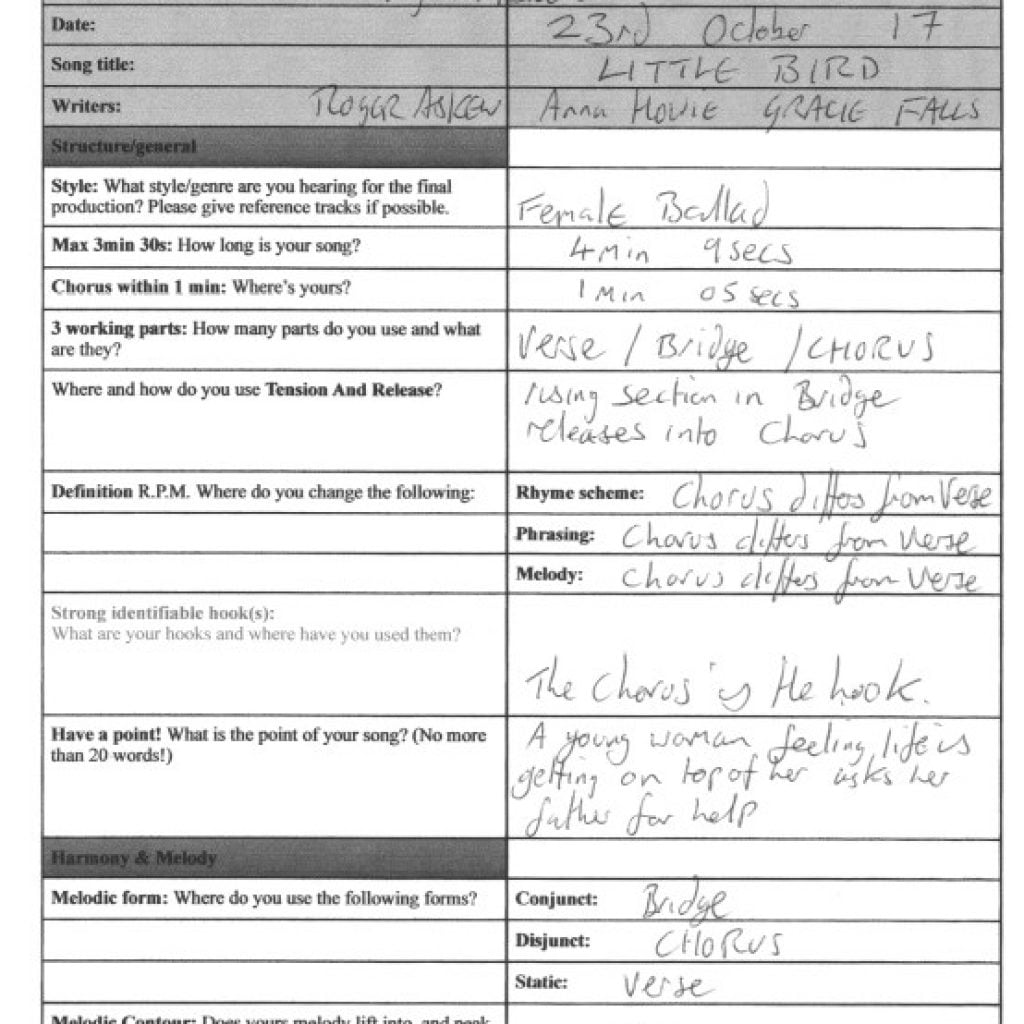 Date: 23rd October 17
Song title: LITTLE BIRD
Writers: ROGER ASKEW Anna Howie GRACIE FALLS
Structure/general
Style: What style/genre are you hearing for the final
production? Please give reference tracks if possible.
Female Ballad
Max 3min 30s: How long is your song? 4 min 9 secs
Chorus within 1 min: Where's yours? 1 Min 05 secs
3 working parts: How many parts do you use and what
are they?
Verse / Bridge / CHORUS
Where and how do you use Tension And Release?
rising section in Bridge
releases into Chorus
Definition R.P.M. Where do you change the following: Rhyme scheme: Chorus differs from Verse
Phrasing: Chorus differs from Verse
Melody: Chorus differs from Verse
Strong identifiable hook(s):
What are your hooks and where have you used them?
The Chorus is the hook.
Have a point! What is the point of your song? (No more
than 20 words!)
A young woman feeling life is
getting on top of her asks her
father for help
Harmony & Melody
Melodic form: Where do you use the following forms? Conjunct: Bridge
Disjunct: CHORUS
Static: Verse
Melodic Contour: Does yours melody lift into, and peak